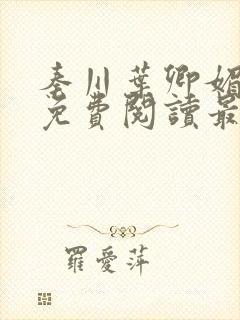 秦川葉卿媚
免費閱讀最
羅愛萍